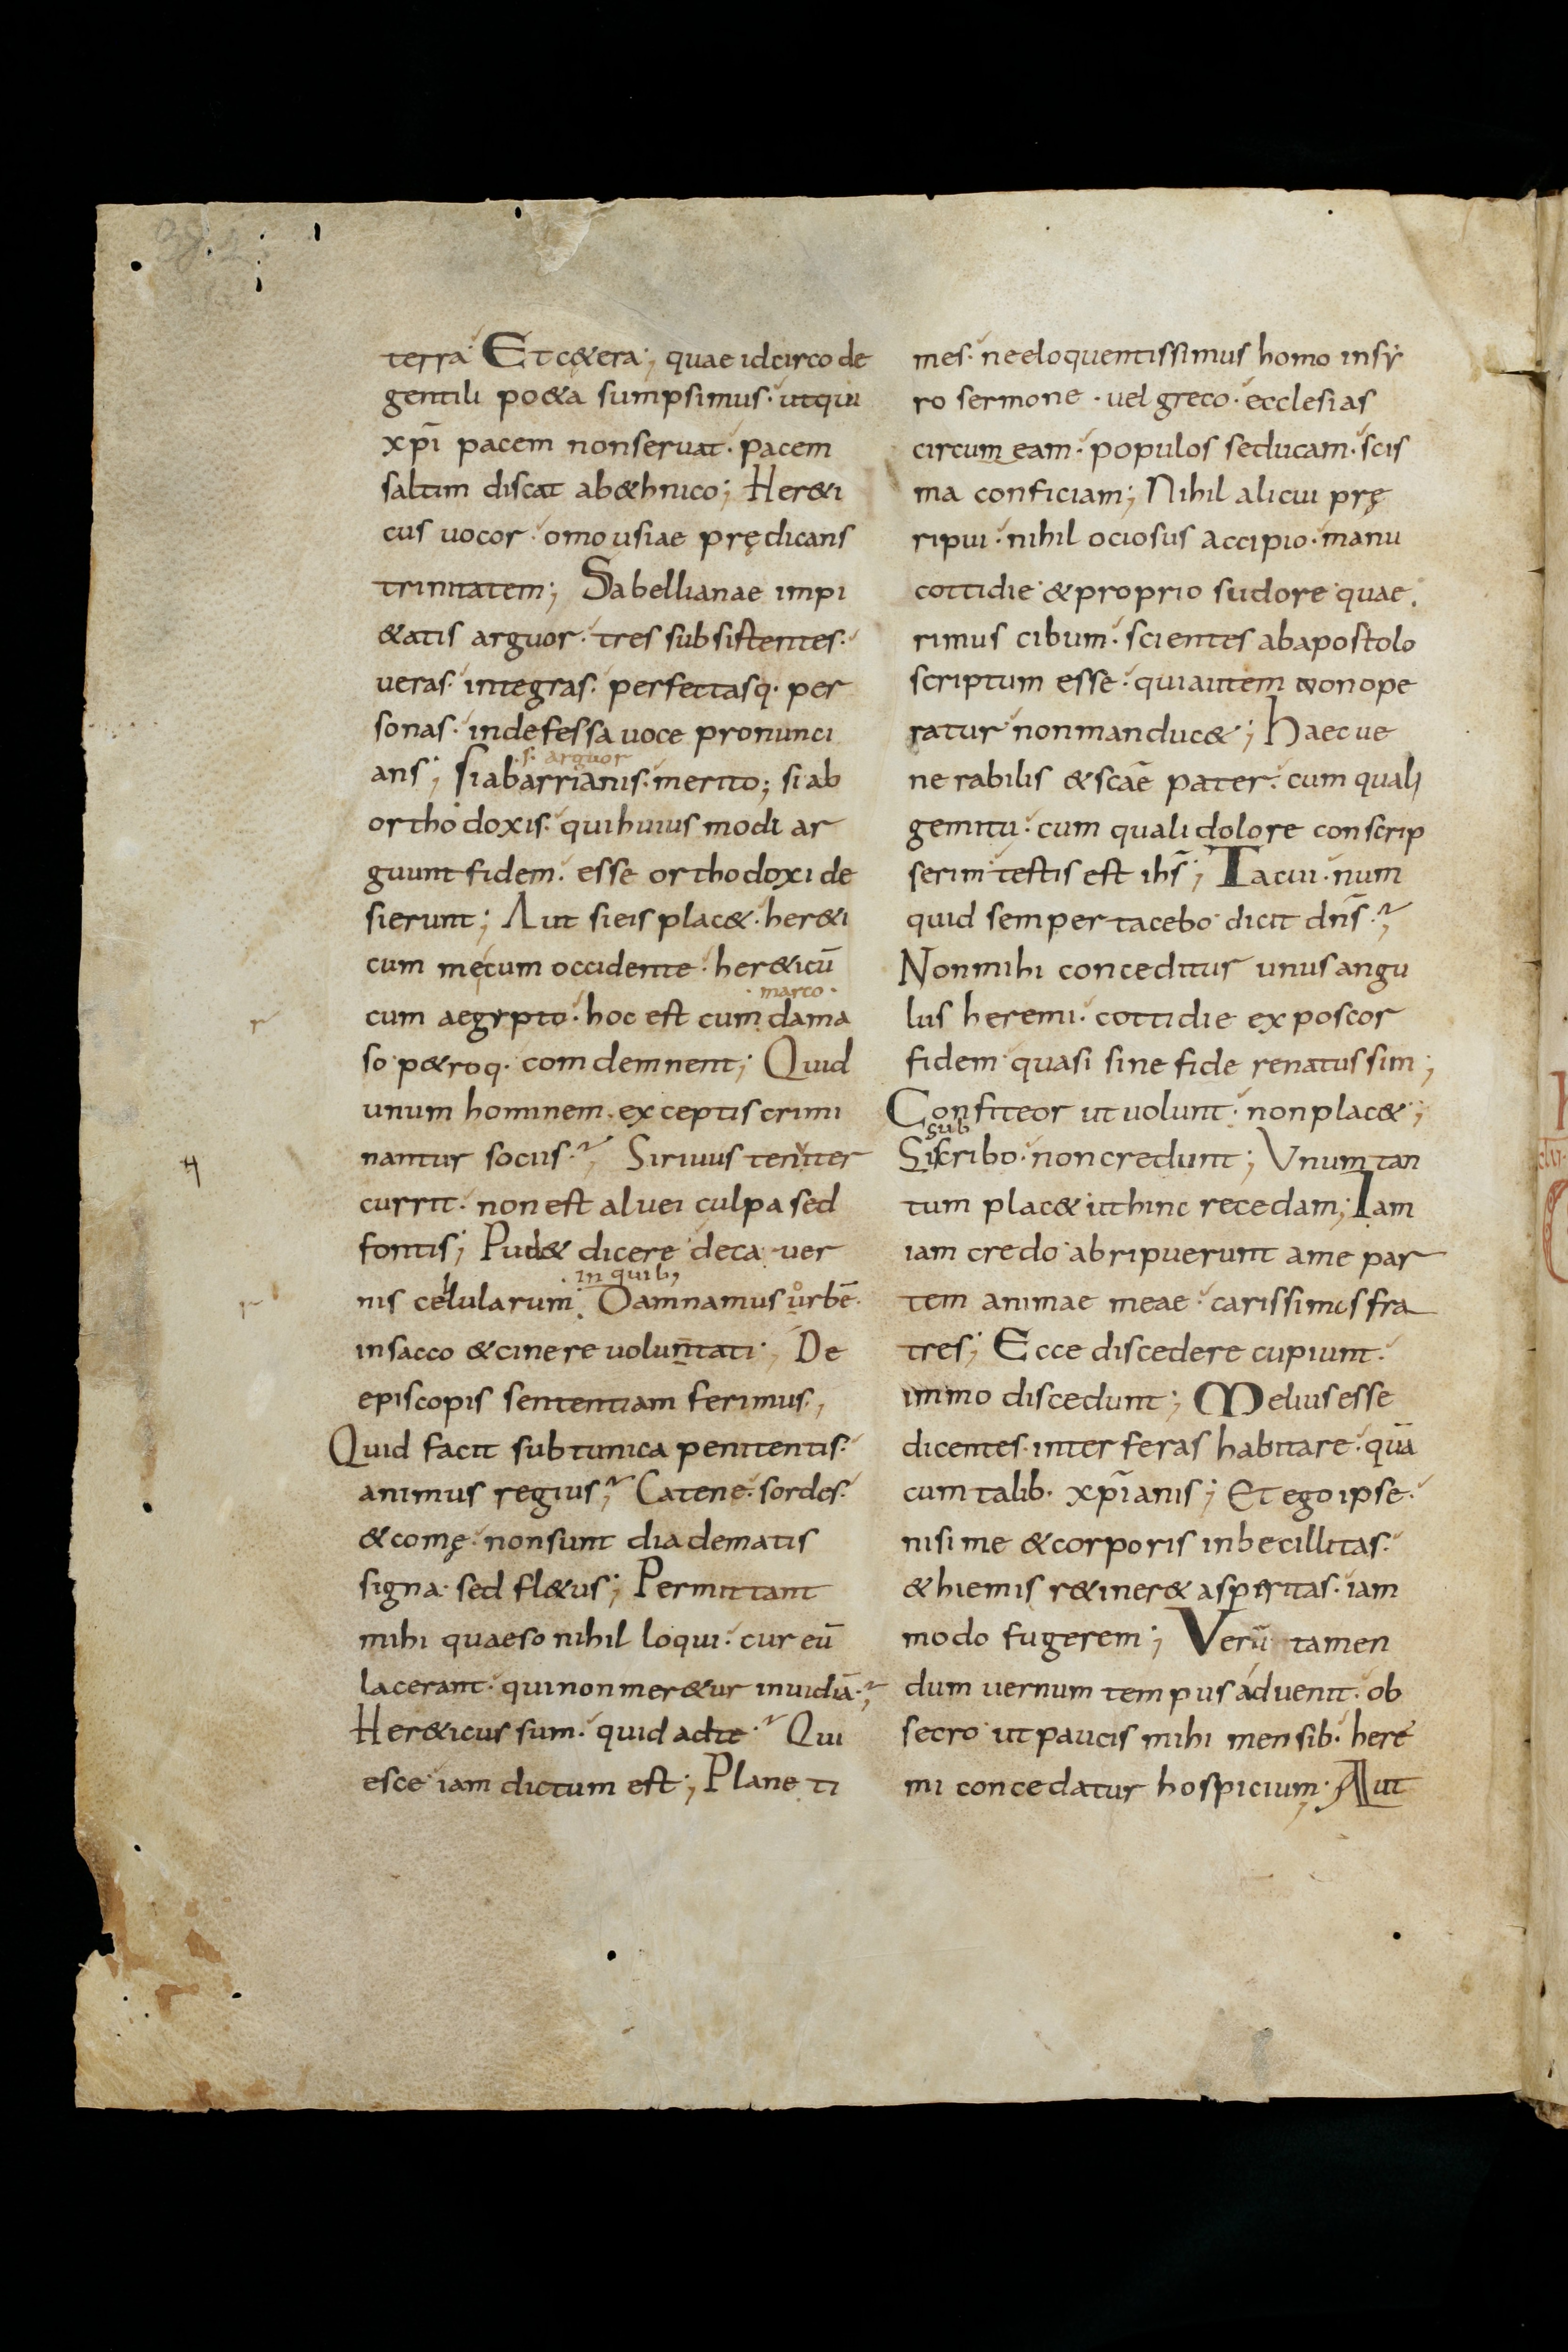 terra· Et c&era; quae idcirco de
gentili po&a sumpsimus· ut qui
xp̄i pacem non seruat· pacem
saltim discat ab &hnico; Her&i
cus uocor· omousiae prędicans
trinitatem; Sabellianae impi
&atis arguor· tres subsistentes·
ueras· integras· perfectasq· per
sonas· indefessa uoce pronunci
·s· arguor
ans; si ab arrianis· merito; si ab
orthodoxis· qui huius modi ar
guunt fidem· esse orthodoxi de
sierunt; Aut si eis plac&· her&i
cum męcum occidente· her&icū
·marco·
cum aegypto· hoc est cum dama
so p&roq· comdemnent; Quid
unum hominem exceptis crimi
nantur sociis·? Si riuus tenuter
currit· non est aluei culpa sed
fontis; Pud& dicere deca uer
·in quib;
nis cellularum· Damnamus urbē·
in sacco & cinere uoluntati; De
episcopis sententiam ferimus;
Quid facit sub tunica penitentis·
animus regius;? Catene· sordes·
& comę· non sunt diadematis
signa· sed fl&us; Permittant
mihi quaeso nihil loqui· cur eū
lacerant· qui non mer&ur inuidiā·;?
Her&icus sum· quid ad te·? Qui
esce iam dictum est; Plane ti
mes· ne eloquentissimus homo in sy
ro sermone· uel greco· ecclesias
circum eam· populos seducam· scis
ma conficiam; Nihil alicui prę
ripui· nihil ociosus accipio· manu
cottidie & proprio sudore quae
rimus cibum· scientes ab apostolo
scriptum esse· qui autem non ope
ratur non manduc&; Haec ue
nerabilis & scāe pater· cum quali
gemitu· cum quali dolore conscrip
serim testis est ihs̄; Tacui· num
quid semper tacebo dicit dn̄s·;?
Non mihi conceditur unus angu
lus heremi· cottidie exposcor
fidem quasi sine fide renatus sim;
Confiteor ut uolunt· non plac&;
sub
Siscribo· non credunt; Vnum tan
tum plac& ut hinc recedam; Iam
iam credo abripuerunt a me par
tem animae meae· carissimos fra
tres; Ecce discedere cupiunt·
immo discedunt; Melius esse
dicentes· inter feras habitare· quā
cum talib· xp̄ianis; Et ego ipse·
nisi me & corporis inbecillitas·
& hiemis r&iner& asperitas· iam
modo fugerem; Verū tamen
dum uernum tempus aduenit· ob
secro ut paucis mihi mensib· here
mi concedatur hospicium; Aut